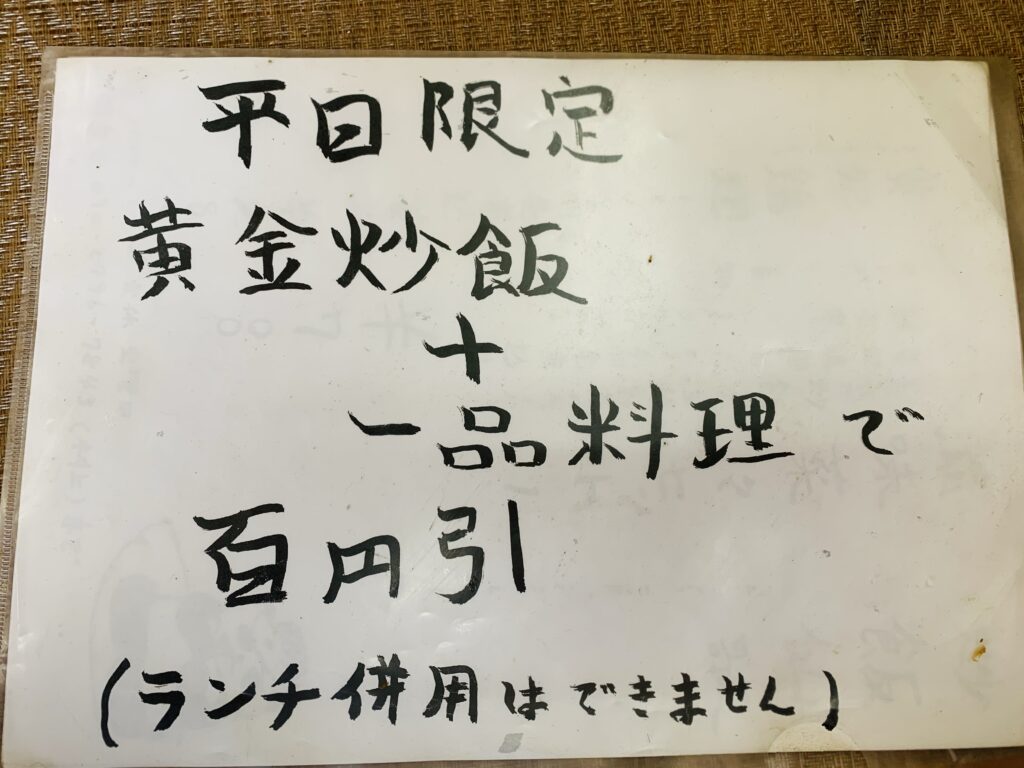 平日限定
黄金炒飯
+
一品料理で
百円引
(ランチ併用はできません)